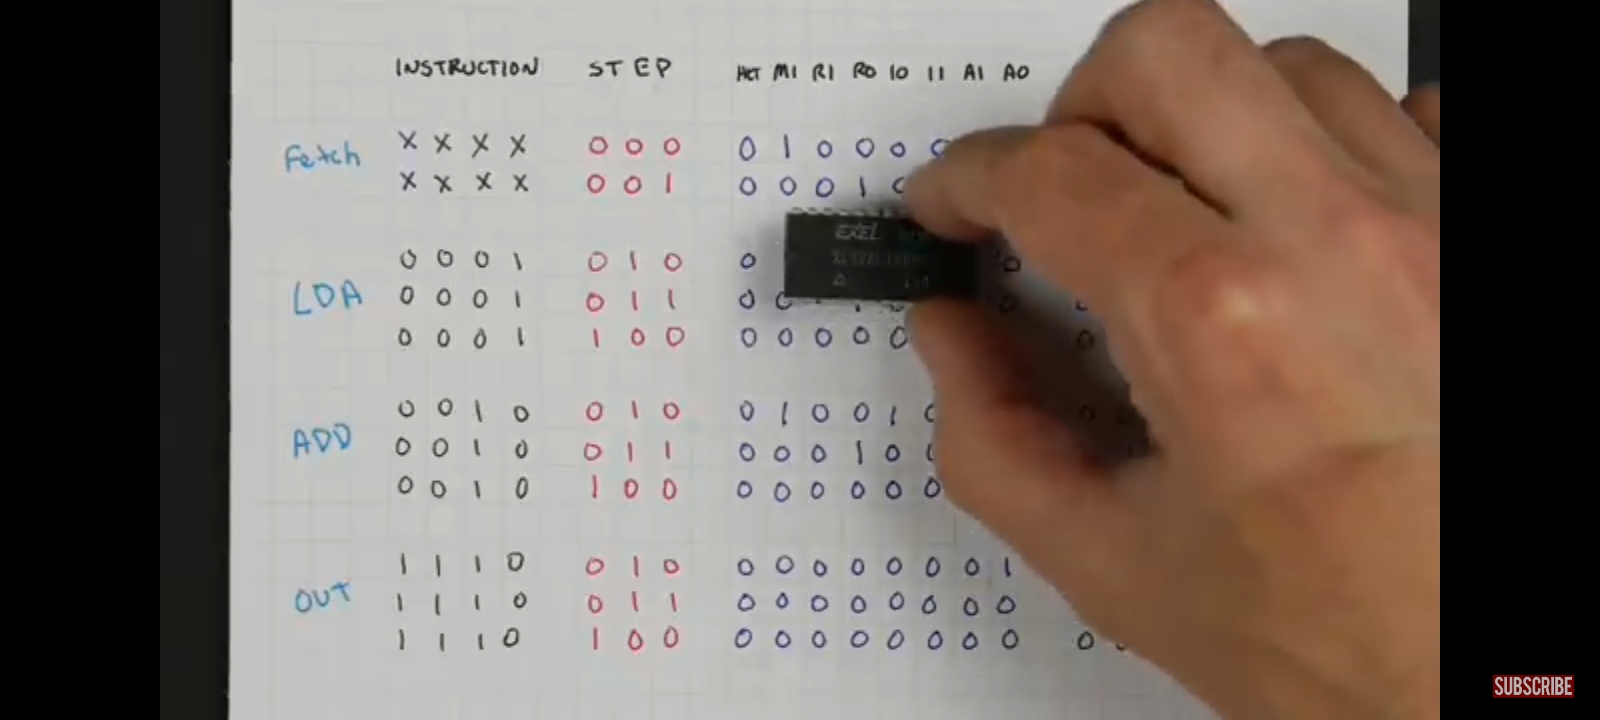 INSTRUCTION STEP HLT MI RI RO IO II AI AO
Fetch
X X X X 0 0 0 0 1 0 0 0 0
X X X X 0 0 1 0 0 0 1
EXEL
LDA
0 0 0 1 0 1 0 0 0
0 0 0 1 0 1 1 0 0
0 0 0 1 1 0 0 0 0 0 0 0 0
ADD
0 0 1 0 0 1 0 0 1 0 0 1
0 0 1 0 0 1 1 0 0 0 1 0
0 0 1 0 1 0 0 0 0 0 0 0 0
OUT
1 1 1 0 0 1 0 0 0 0 0 0 0 0 1
1 1 1 0 0 1 1 0 0 0 0 0 0 0 0
1 1 1 0 1 0 0 0 0 0 0 0 0 0 0 0
SUBSCRIBE